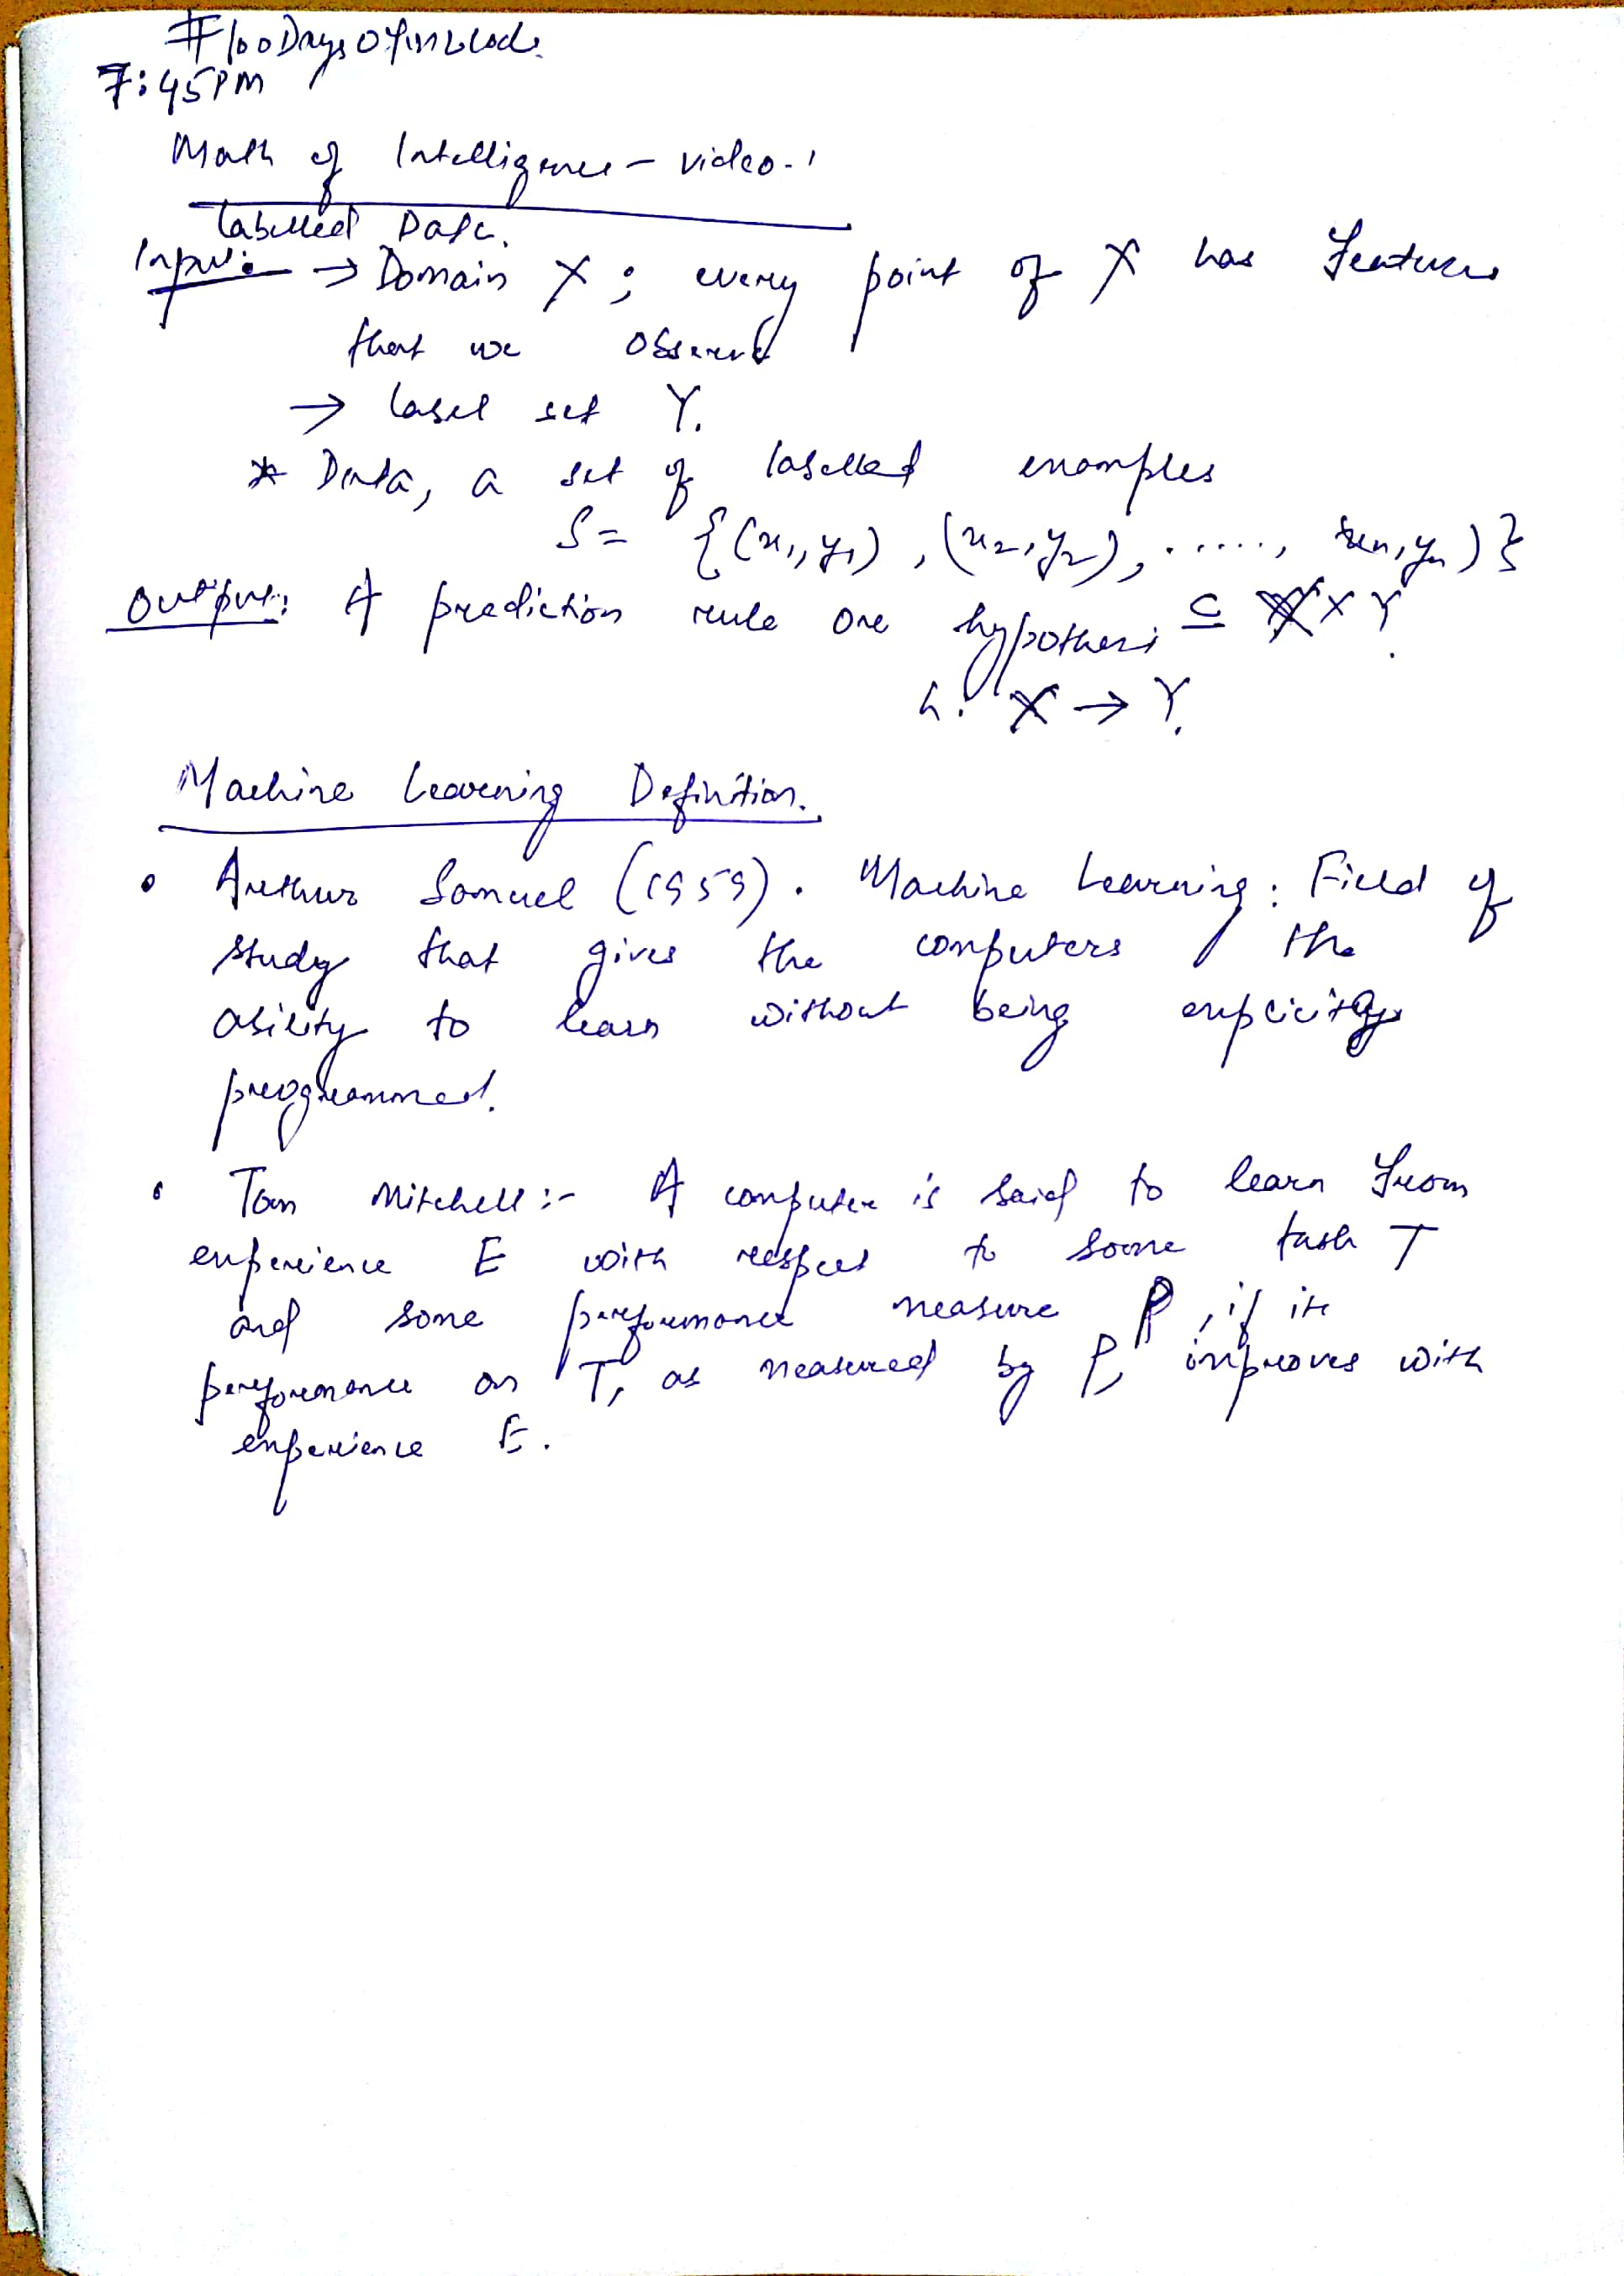 #100DaysOfMLCode
7:45PM
Math of Intelligence - video-1
Labelled Data.
Input: → Domain X; every point of X has features
that we observe
→ label set Y.
* Data, a set of labelled examples
S = {(x1,y1), (x2,y2), ....., xn,yn)}
⊆ X x Y.
Output: A prediction rule or hypothesis
h: X → Y.
Machine Learning Definition.
• Arthur Samuel (1959). Machine Learning: Field of
study that gives the computers the
ability to learn without being explicitly
programmed.
• Tom Mitchell :- A computer is said to learn from
experience E with respect to some task T
and some performance measure P, if its
performance on T, as measured by P, improves with
experience E.